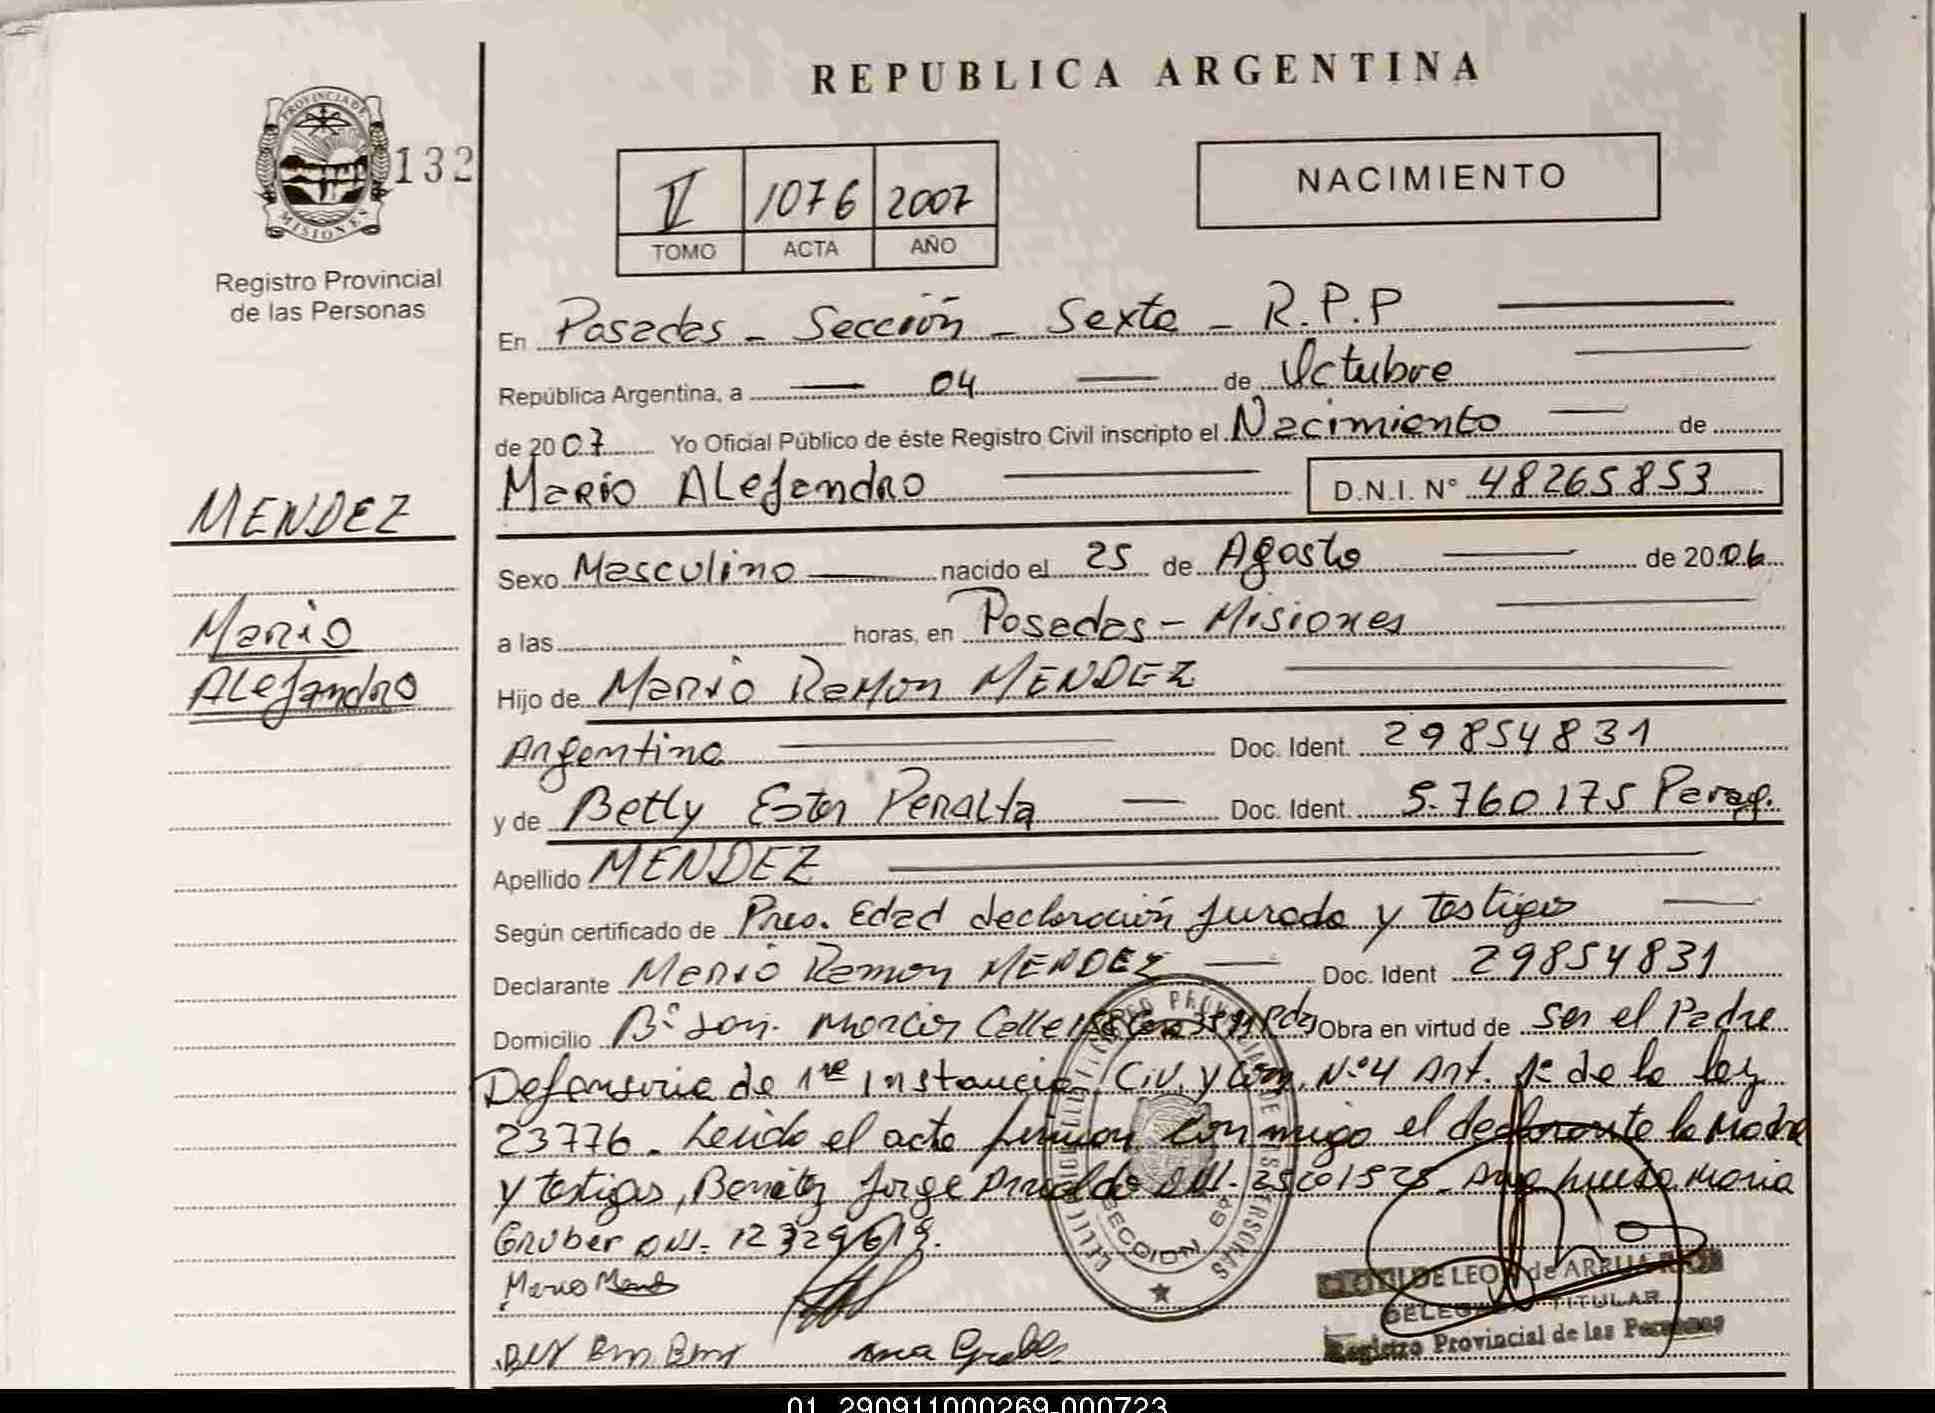 REPUBLICA ARGENTINA
PROVINCIA DE MISIONES
132
Registro Provincial
de las Personas
V 1076 2007
TOMO ACTA AÑO
NACIMIENTO
En Posadas - Sección - Sexta - R.P.P
República Argentina, a 04 de Octubre
de 2007 Yo Oficial Público de éste Registro Civil inscripto el Nacimiento de
Mario ALejandro D.N.I. N° 48265853
MENDEZ
Mario
ALejandro
Sexo Masculino nacido el 25 de Agosto de 2006
a las horas, en Posadas - Misiones
Hijo de Mario Ramon MENDEZ
Argentino Doc. Ident. 29854831
y de Betty Ester Peralta Doc. Ident. 5.760175 Parag.
Apellido MENDEZ
Según certificado de Pres. Edad declaración jurada y testigos
Declarante Mario Ramon MENDEZ Doc. Ident 29854831
Domicilio B° San Marcos Calle Pdas Obra en virtud de ser el Padre
Defensoria de 1ra Instancia Civ. y Com. N°4 Art. 1° de la ley
23776. Leida el acta firman conmigo el declarante la Madre
y testigos, Benitez Jorge DNI. Ana María
Gruber DNI. 12329619.
Mario
REGISTRO PROVINCIAL DE LAS PERSONAS
SECCION 6ª
DE LEON de
DELEGADA TITULAR
Registro Provincial de las Personas
01_290911000269-000723